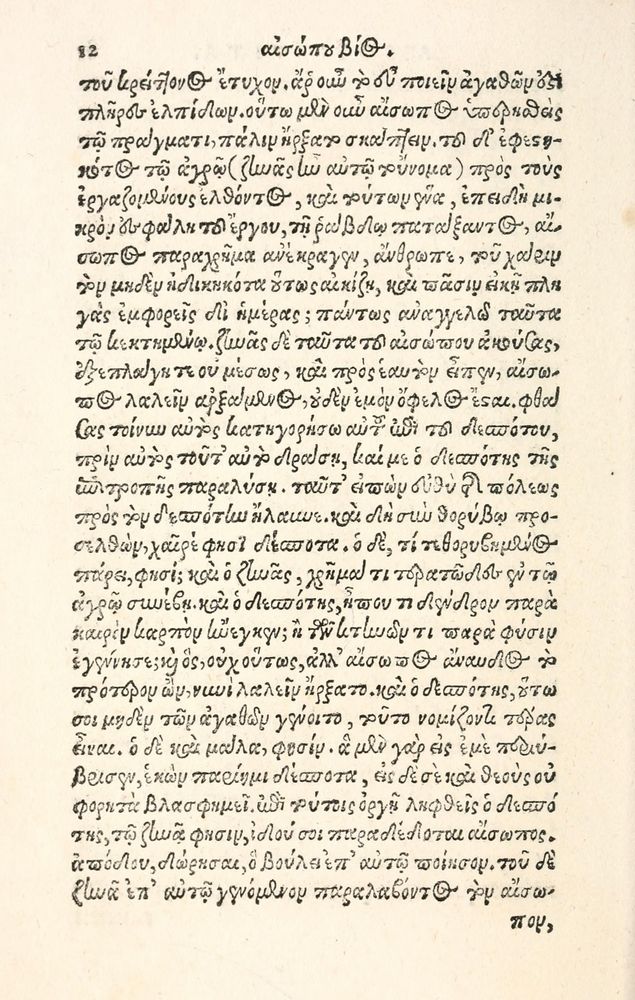 12 αἰσώπου βίος.
τοῦ κρείττονος ἔτυχον. ἆρ' οὖν τὸ εὖ ποιεῖν ἀγαθῶν ἐστὶ
πλῆρες ἐλπίδων. οὕτω μὲν οὖν αἴσωπος ἐπιδηθεὶς
τῷ πράγματι, πάλιν ἤρξατο σκάπτειν. τοῦ δ' ἐφεστη-
κότος τῷ ἀγρῷ (ζηνᾶς ἦν αὐτῷ τὄνομα) πρὸς τοὺς
ἐργαζομένους ἐλθόντος, καὶ τούτων ἕνα, ἐπειδὴ μι-
κρὸν ἐσφάλη τοῦ ἔργου, τῇ ῥάβδῳ πατάξαντος, αἴ-
σωπος παραχρῆμα ἀνέκραγεν, ἄνθρωπε, τοῦ χάριν
τὸν μηδὲν ἠδικηκότα οὕτως αἰκίζῃ, καὶ πᾶσιν εἰκῆ πλη
γὰς ἐμφορεῖς δι' ἡμέρας; πάντως ἀναγγελῶ ταῦτα
τῷ κεκτημένῳ. ζηνᾶς δὲ ταῦτα τοῦ αἰσώπου ἀκούσας,
ἐξεπλάγη τε οὐ μέσως, καὶ πρὸς ἑαυτὸν εἶπεν, αἴσω-
πος λαλεῖν ἀρξάμενος, οὐδὲν ἐμὸν ὄφελος ἔσται. φθά
σας τοίνυν αὐτὸς κατηγορήσω αὐτοῦ ἐπὶ τοῦ δεσπότου,
πρὶν αὐτὸς τοῦτ' αὐτὸ δράσῃ, καί με ὁ δεσπότης τῆς
ἐπιτροπῆς παραλύσῃ. ταῦτ' εἰπὼν εὐθὺ τῆς πόλεως
πρὸς τὸν δεσπότην ἤλαυνε. καὶ δὴ σὺν θορύβῳ προ-
σελθὼν, χαῖρέ φησι δέσποτα. ὁ δὲ, τί τεθορυβημένος
πάρει, φησί; καὶ ὁ ζηνᾶς, χρῆμά τι τερατῶδες ἐν τῷ
ἀγρῷ συνέβη. καὶ ὁ δεσπότης, ἤπου τι δένδρον παρὰ
καιρὸν καρπὸν ἤνεγκεν; ἢ τῶν κτηνῶν τι παρὰ φύσιν
ἐγέννησε; κὶ ὃς, οὐχ οὕτως, ἀλλ' αἴσωπος ἄναυδος τὸ
πρότερον ὢν, νυνὶ λαλεῖν ἤρξατο. καὶ ὁ δεσπότης, οὕτω
σοι μηδὲν τῶν ἀγαθῶν γένοιτο, τοῦτο νομίζοντι τέρας
εἶναι. ὁ δὲ καὶ μάλα, φησίν. ἃ μὲν γὰρ εἰς ἐμὲ περιύ-
βρισεν, ἑκὼν παρίημι δέσποτα, εἰς δὲ σὲ καὶ θεοὺς οὐ
φορητὰ βλασφημεῖ. ἐπὶ τούτοις ὀργῇ ληφθεὶς ὁ δεσπό
της, τῷ ζηνᾷ φησιν, ἰδού σοι παραδέδοται αἴσωπος.
ἀπόδου, δώρησαι, ὃ βούλει ἐπ' αὐτῷ ποίησον. τοῦ δὲ
ζηνᾶ ἐπ' αὐτῷ γενόμενον παραλαβόντος τὸν αἴσω-
πον,